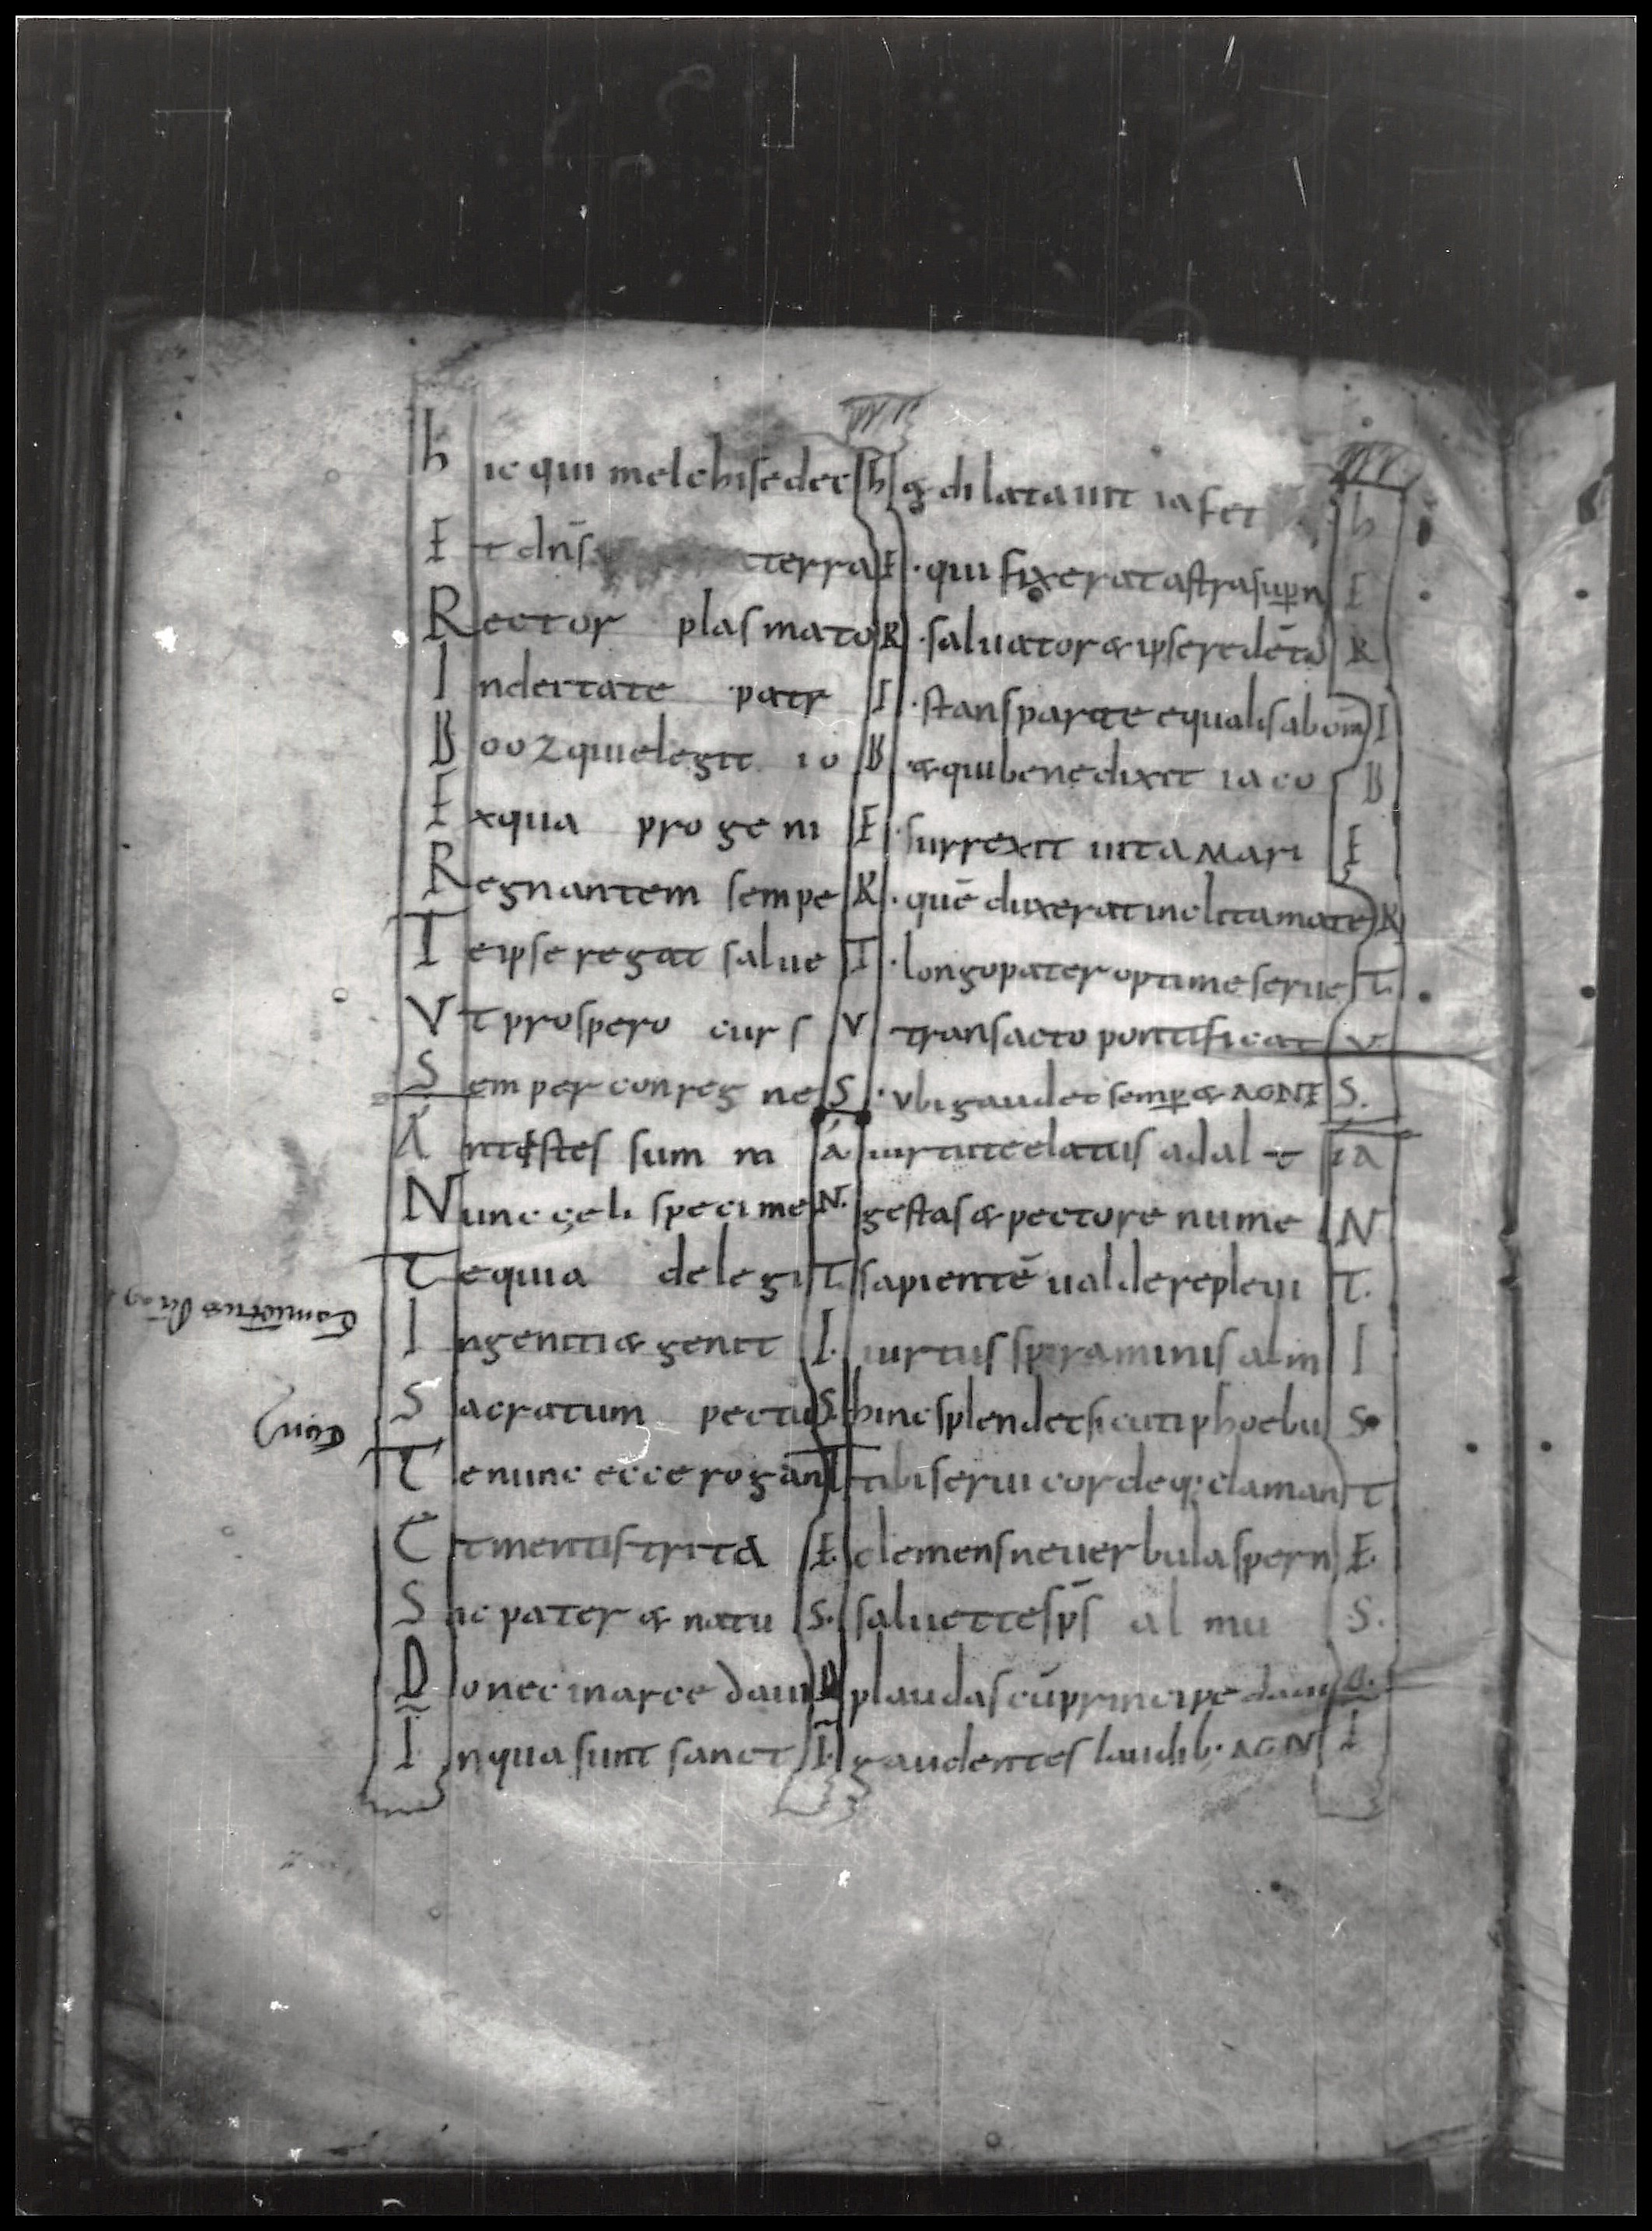 h ic qui melchisedec h & dilatauit iafet h
E t dn̄s terra E · qui fixerat astra sup̲n E
R ector plasmato R · saluator & ipse redēto R
I ndeitate patr I · stans parite equalis ab om̄ I
B ooz qui elegit io B & qui benedixit iaco B
E xqua progeni E · surrexit uita mari E
R egnantem sempe R · quē duxerat inclita mate R
T e ipse regat salue T · longo pater optime serue T
V t prospero curs V transacto pontificat V
S emper conregne S · vbi gaudet semp̲ & AGNI S
A ntestes sum ni A uirtute elatus ad alt A
N unc cęli specime N gestas & pectore nume N
T equia delegi T sapientē ualde repleui T
I ngeniti & genit I uirtus spiraminis alm I
S acratum pectu S hinc splendet sicuti phoebu S
T e nunc ecce rogan T tibi serui cordeq; claman T
E t mentis trita E clemens ne uerbula spern E
S ic pater & natu S saluet te sp̄s almu S
D onec in arce daui D plaudas cū principe daui D
I n qua sunt sanct I gaudentes laudib· AGN I